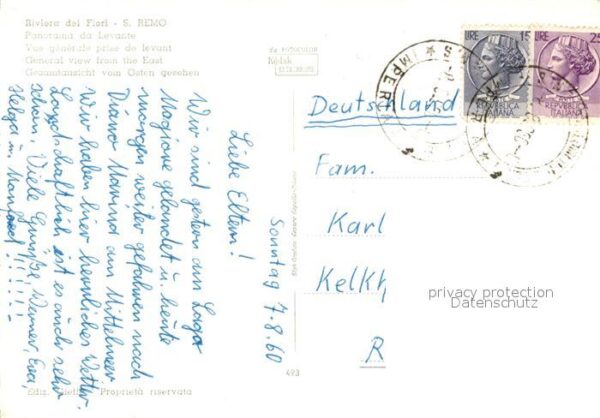 Riviera dei Fiori - S. REMO
Panorama da Levante
Vue générale prise de levant
General view from the East
Gesamtansicht vom Osten gesehen
da FOTOCOLOR
Kodak
EKTACHROME
Sonntag 7.8.60
Liebe Eltern!
Wir sind gestern am Lago
Maggiore gelandet u. heute
morgen weiter gefahren nach
Diano Marina am Mittelmeer
Wir haben hier herrliches Wetter.
Landschaftlich ist es auch sehr
schön. Viele Grüße Werner, Eva,
Helga u. Manfred!!!!!
LIRE 15
REPVBBLICA
ITALIANA
LIRE 25
REPVBBLICA
ITALIANA
IMPERIA
Deutschland
Fam.
Karl
Kelkh
R
privacy protection
Datenschutz
493
Proprietà riservata